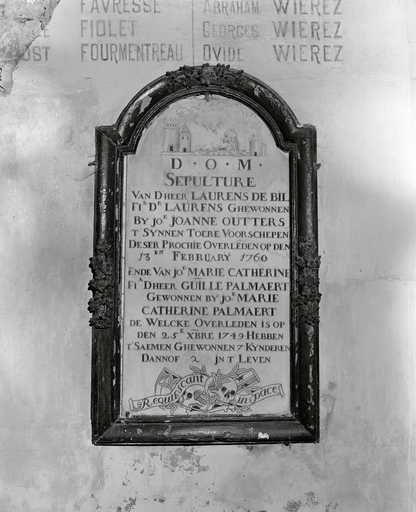 FAVRESSE ABRAHAM WIEREZ
FIOLET GEORGES WIEREZ
FOURMENTREAU OVIDE WIEREZ
D · O · M ·
SEPULTURE
VAN DHEER LAURENS DE BIL
FIˢ Dᴿ LAURENS GHEWONNEN
BY JOᴱ JOANNE OUTTERS
T SYNNEN TOERE VOORSCHEPEN
DESER PROCHIE OVERLEDEN OP DEN
13ᴱᴺ FEBRUARY 1760
ENDE VAN JOᴱ MARIE CATHERINE
FIᴬ DHEER GUILLE PALMAERT
GEWONNEN BY JOᴱ MARIE
CATHERINE PALMAERT
DE WELCKE OVERLEDEN IS OP
DEN 25ᴱ XBRE 1749 HEBBEN
T'SAEMEN GHEWONNEN 7 KYNDEREN
DANNOF 2 JN T LEVEN
Requiescant in pace